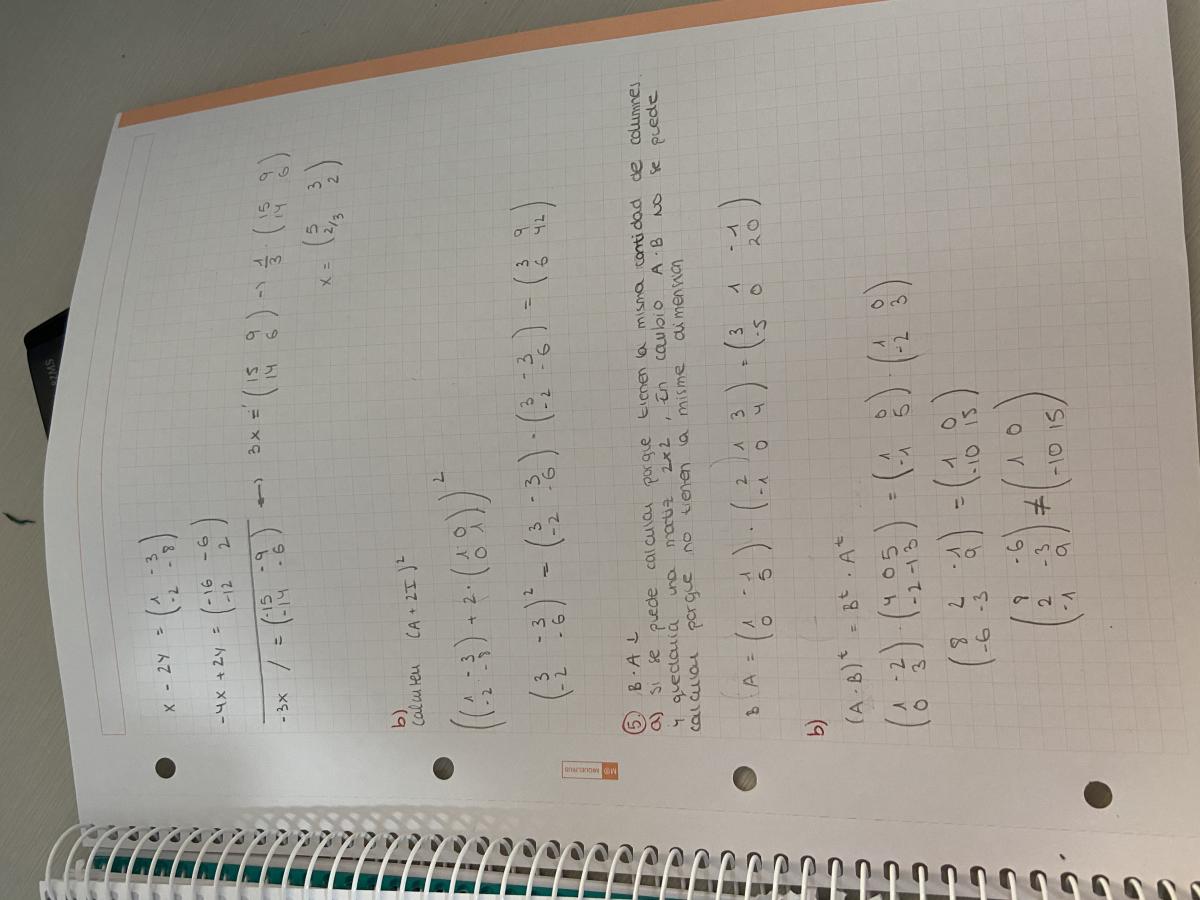 x - 2y = (1 -3 / -2 -8)
-4x + 2y = (-16 -6 / -12 2)
-3x / = (-15 -9 / -14 -6) ⟷ 3x = (15 9 / 14 6) → 1/3 · (15 9 / 14 6)
x = (5 3 / 2/3 2)
b)
Calculeu (A + 2I)²
((1 -3 / -2 -8) + 2 · (1 0 / 0 1))²
(3 -3 / -2 -6)² = (3 -3 / -2 -6) · (3 -3 / -2 -6) = (3 9 / 6 42)
5.
B · A
a) Si se puede calcular porque tienen la misma cantidad de columnes.
y quedaria una matiz 2x2, En caubio A·B no se puede
calcular porque no tienen la misme dimension
B · A = (1 -1 / 0 5) · (2 1 3 / -1 0 4) = (3 1 -1 / -5 0 20)
b)
(A·B)ᵗ = Bᵗ · Aᵗ
(1 -2 / 0 3) · (4 0 5 / -2 -1 3) = (1 0 / -1 5) · (1 0 / -2 3)
(8 2 -1 / -6 -3 9) = (1 0 / -10 15)
(8 -6 / 2 -3 / -1 9) ≠ (1 0 / -10 15)
MIQUELRIUS